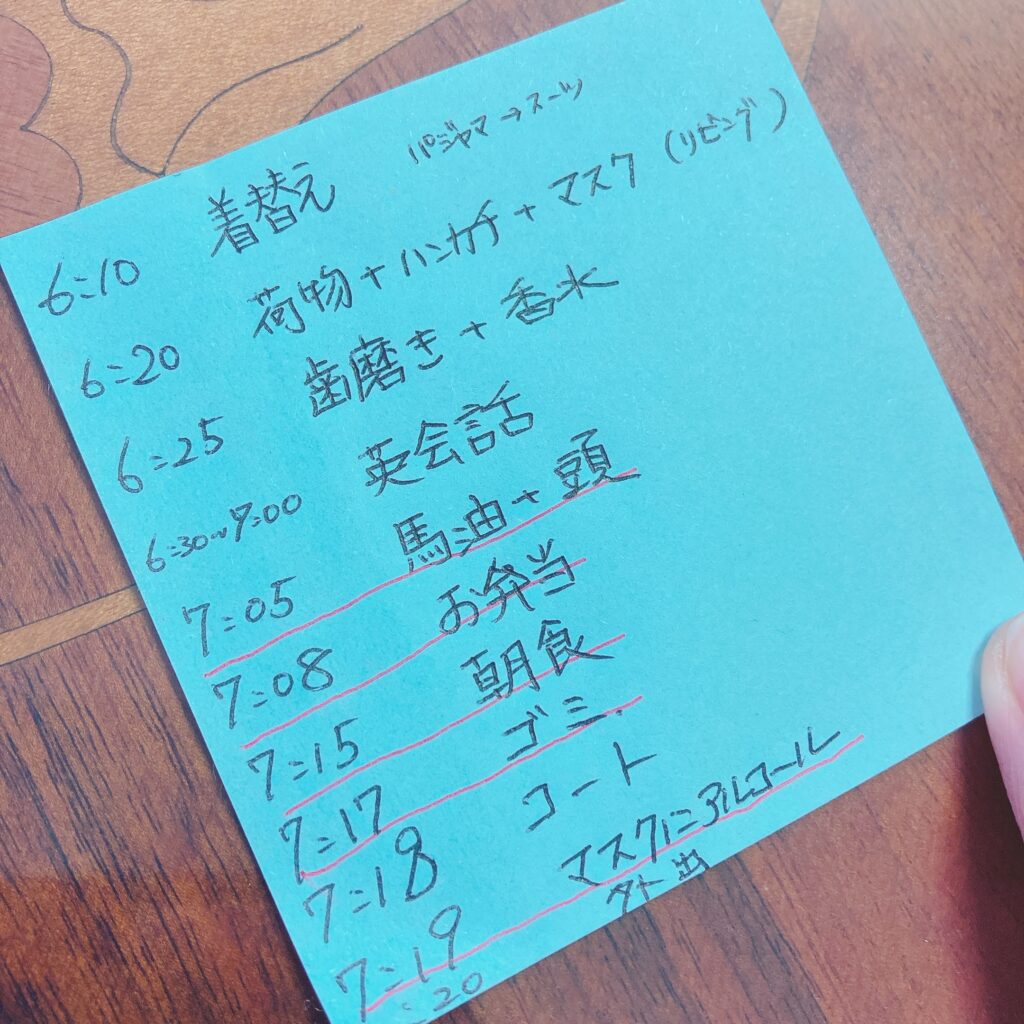 6:10 着替え パジャマ→スーツ
6:20 荷物+ハンカチ+マスク(リビング)
6:25 歯磨き+香水
6:30~7:00 英会話
7:05 馬油+頭
7:08 お弁当
7:15 朝食
7:17 ゴミ.
7:18 コート
7:19 マスクにアルコール
:20 外出